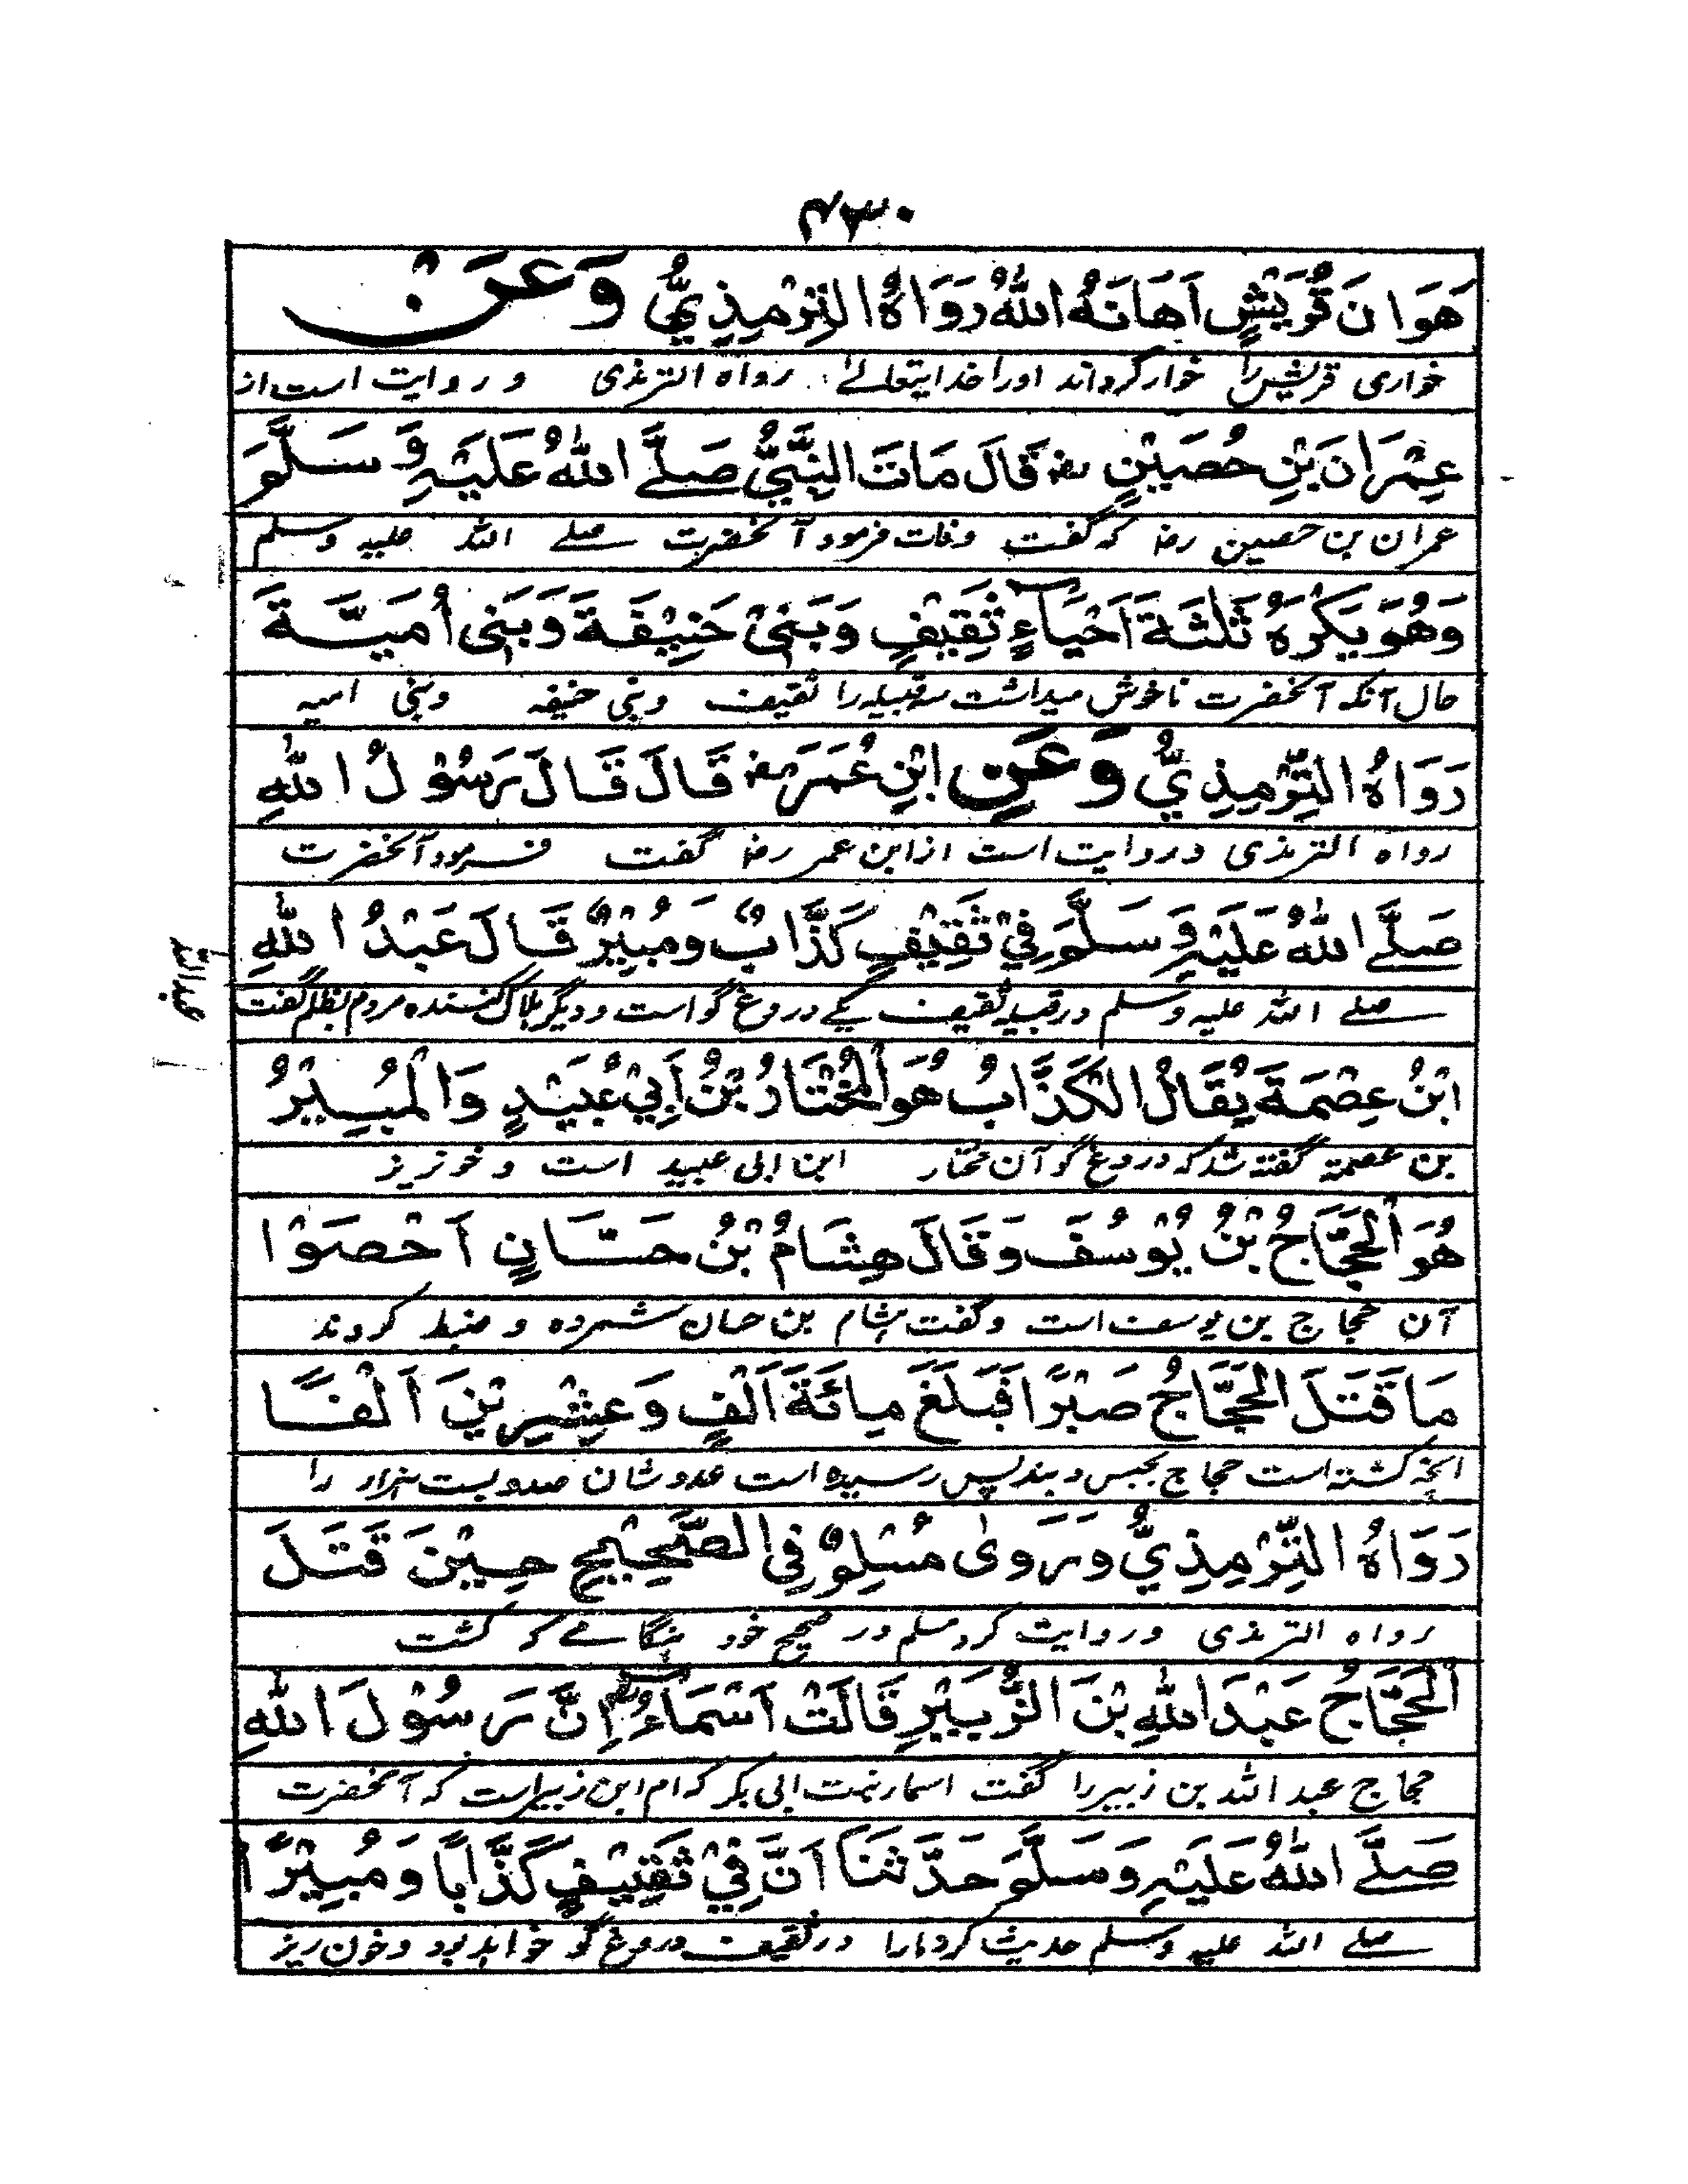 ۴۳۰
هَوَانَ قُرَيْشٍ اَهَانَهُ اللّٰهُ رَوَاهُ التِّرْمِذِيُّ وَعَنْ
خواری قریش را خوار گرداند اورا خدایتعالے رواہ الترمذی و روایت است از
عِمْرَانَ بْنِ حُصَيْنٍ رض قَالَ مَاتَ النَّبِيُّ صَلَّے اللّٰهُ عَلَيْهِ وَسَلَّمَ
عمران بن حصین رض کہ گفت وفات فرمود آنحضرت صلے اللہ علیہ وسلم
وَهُوَ يَكْرَهُ ثَلٰثَةَ اَحْيَآءٍ ثَقِيْفٍ وَبَنِيْ حَنِيْفَةَ وَبَنِى اُمَيَّةَ
حال آنکہ آنحضرت ناخوش میداشت سہ قبیلہ را ثقیف وبنی حنیفہ وبنی امیہ
رَوَاهُ التِّرْمِذِيُّ وَعَنِ ابْنِ عُمَرَ رض قَالَ قَالَ رَسُوْلُ اللّٰهِ
رواہ الترمذی و روایت است از ابن عمر رض گفت فرمود آنحضرت
صَلَّے اللّٰهُ عَلَيْهِ وَسَلَّمَ فِيْ ثَقِيْفٍ كَذَّابٌ وَمُبِيْرٌ قَالَ عَبْدُ اللّٰهِ
صلے اللہ علیہ وسلم در قبیلہ ثقیف یکے دروغ گو است و دیگر ہلاک کنندہ مردم بظلم گفت
عبداللہ
ابْنُ عِصْمَةَ يُقَالُ الْكَذَّابُ هُوَ الْمُخْتَارُ بْنُ أَبِيْ عُبَيْدٍ وَالْمُبِيْرُ
بن عصمۃ گفتہ شد کہ دروغ گو آن مختار ابن ابی عبید است و خونریز
هُوَ الْحَجَّاجُ بْنُ يُوْسُفَ وَقَالَ هِشَامُ بْنُ حَسَّانٍ اَحْصَوْا
آن حجاج بن یوسف است و گفت ہشام بن حسان شمردہ و ضبط کردند
مَا قَتَلَ الْحَجَّاجُ صَبْرًا فَبَلَغَ مِائَةَ اَلْفٍ وَعِشْرِيْنَ اَلْفًا
آنچہ کشتہ است حجاج بحبس و بند پس رسیدہ است عدد شان صد و بست ہزار را
رَوَاهُ التِّرْمِذِيُّ وَرَوٰى مُسْلِمٌ فِي الصَّحِيْحِ حِيْنَ قَتَلَ
رواہ الترمذی و روایت کرد مسلم در صحیح خود ہنگامے کہ کشت
الْحَجَّاجُ عَبْدَ اللّٰهِ بْنَ الزُّبَيْرِ قَالَتْ اَسْمَآءُ اِنَّ رَسُوْلَ اللّٰهِ
حجاج عبد اللہ بن زبیر را گفت اسما بنت ابی بکر کہ ام ابن زبیر است کہ آنحضرت
صَلَّے اللّٰهُ عَلَيْهِ وَسَلَّمَ حَدَّثَنَا اَنَّ فِيْ ثَقِيْفٍ كَذَّابًا وَمُبِيْرًا
صلے اللہ علیہ وسلم حدیث کرد مارا در ثقیف دروغ گو خواہد بود و خون ریز